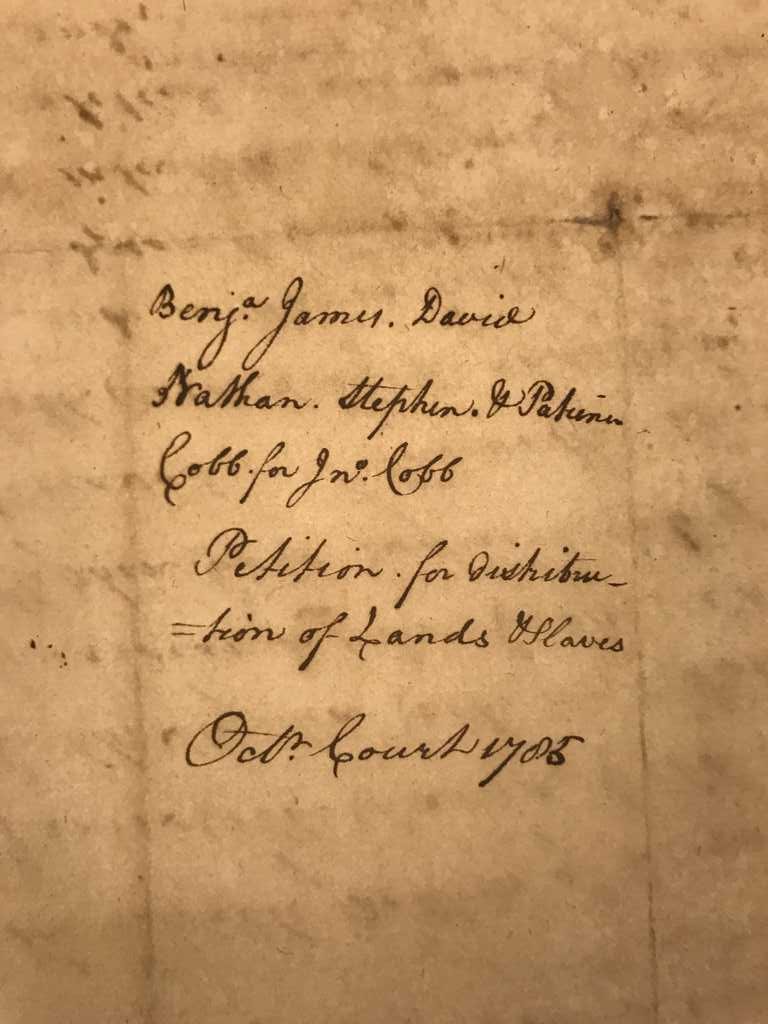 Benja. James. David
Nathan. Stephen. & Patience
Cobb. for Jno. Cobb
Petition. for distribu_
=tion of Lands & Slaves
Octr. Court 1785